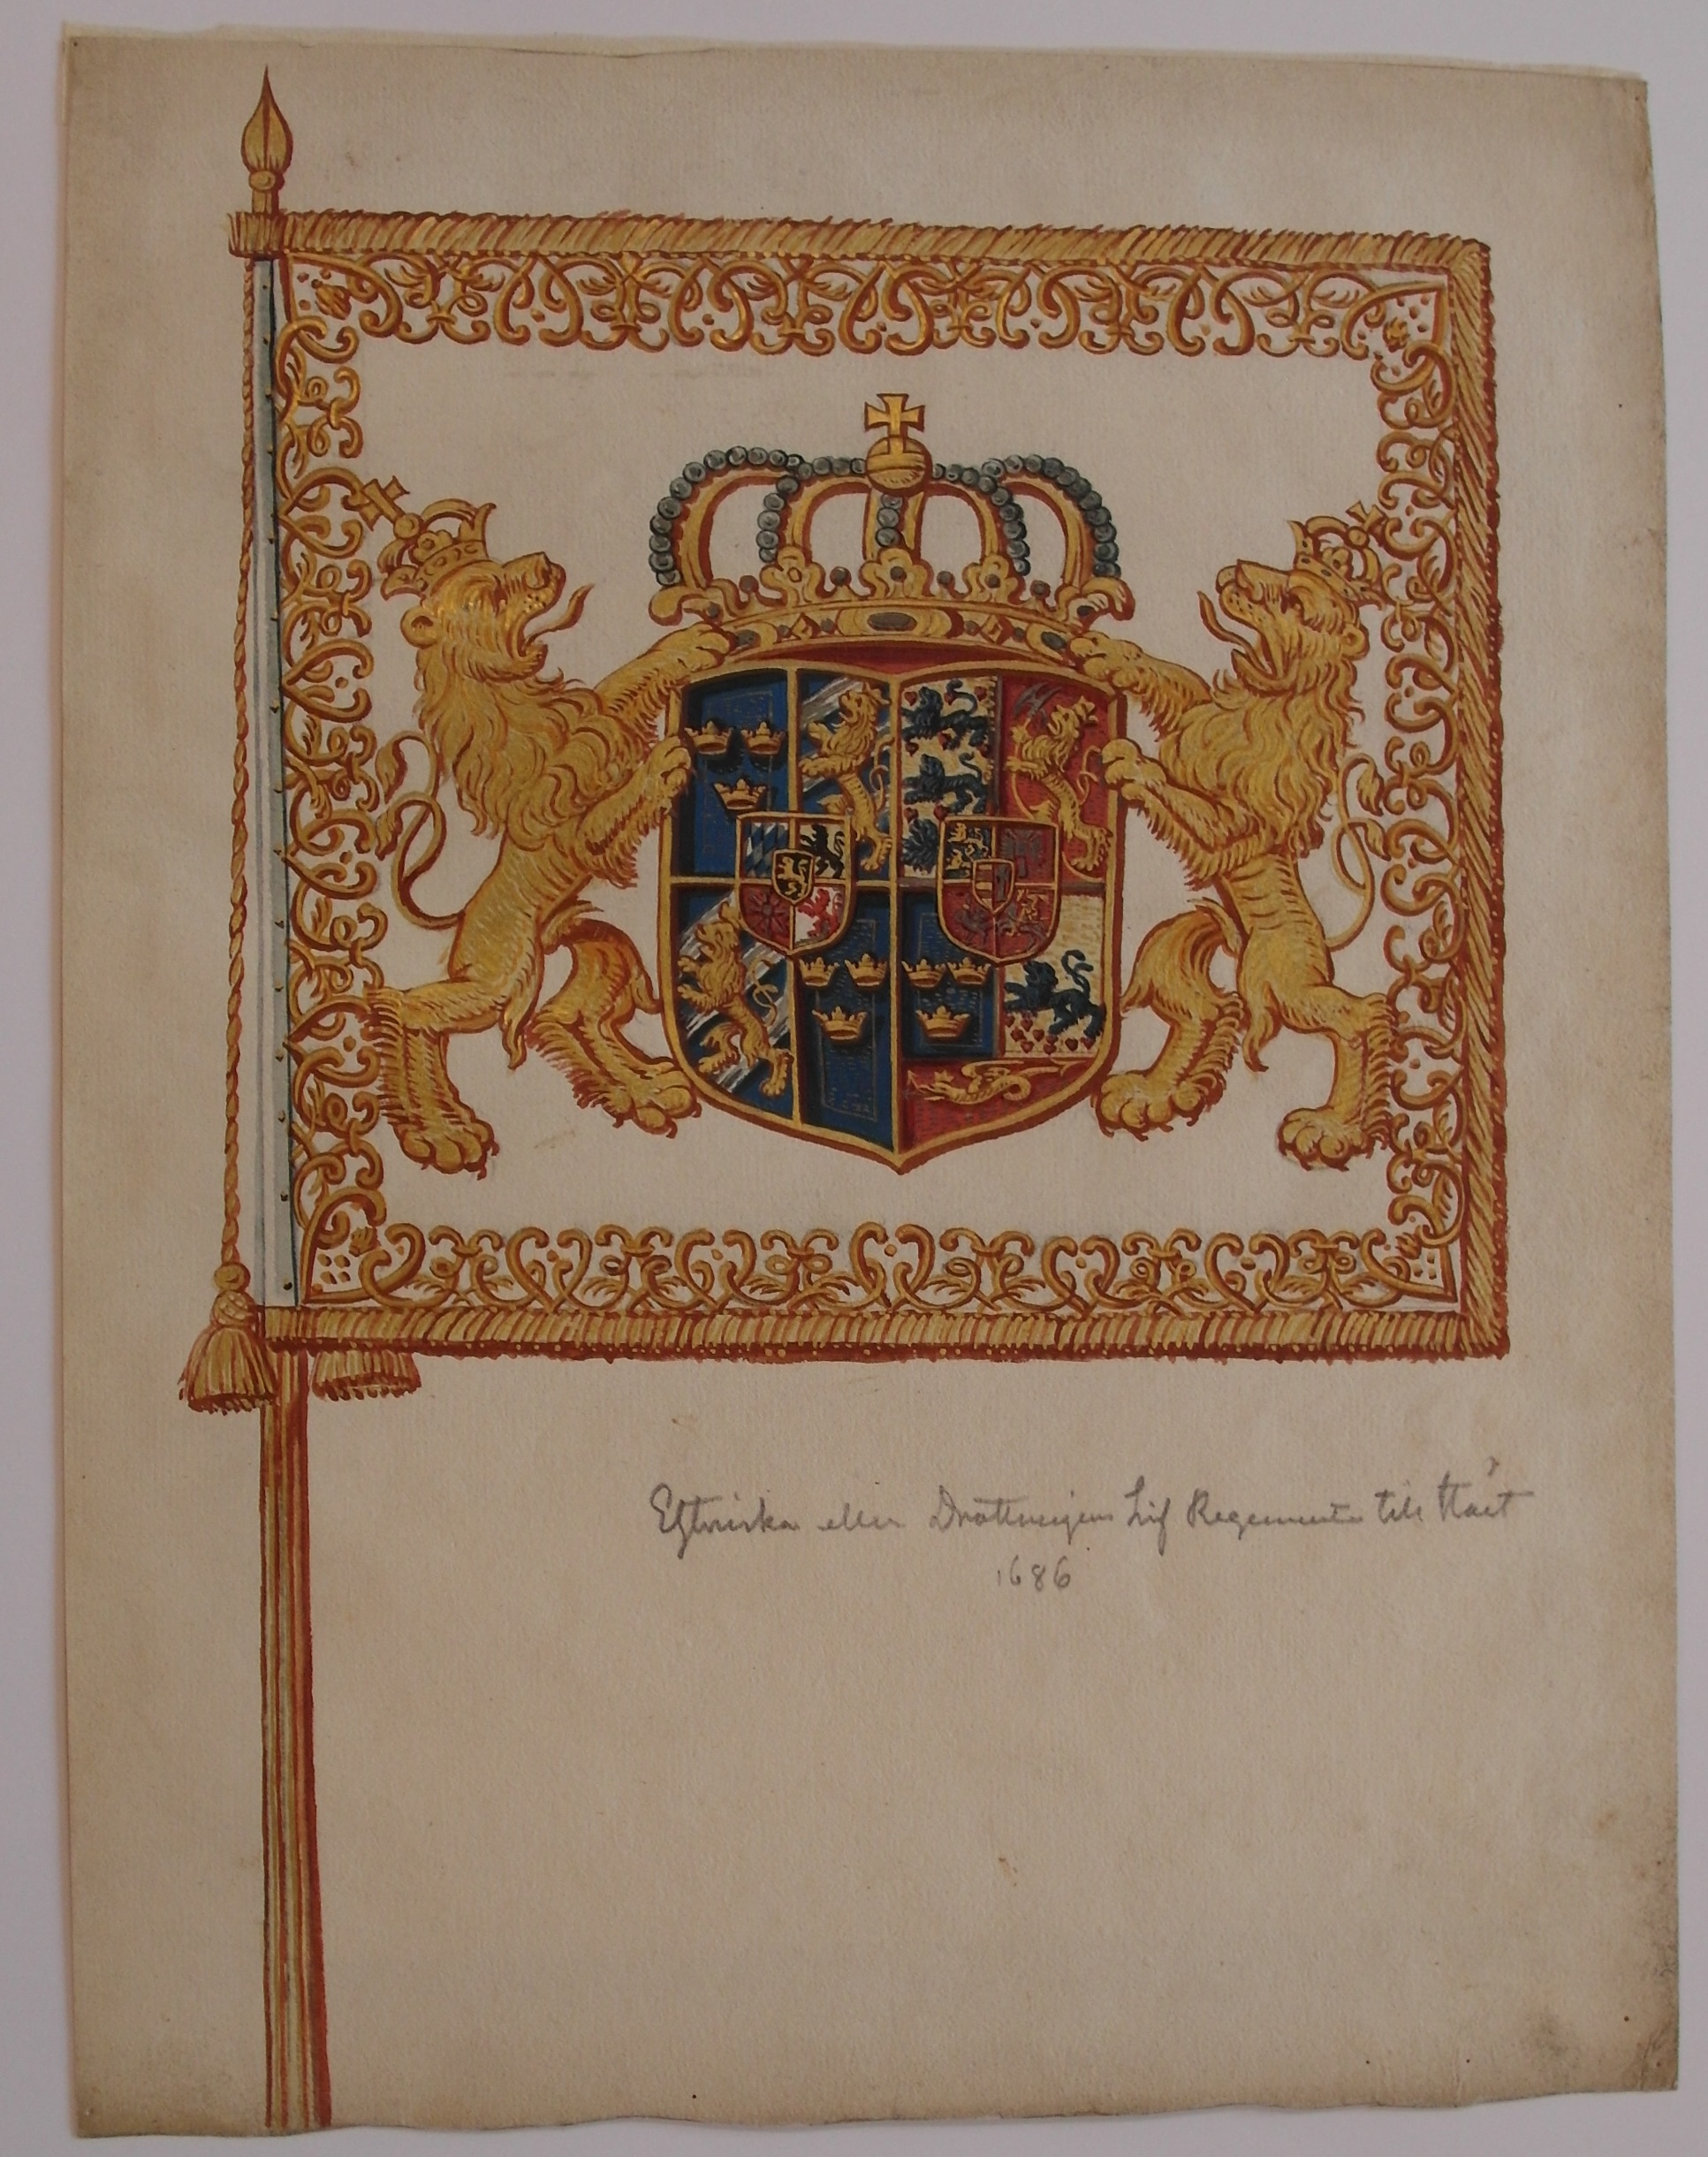 Estniska eller Drottningens Lif Regemente till Häst
1686